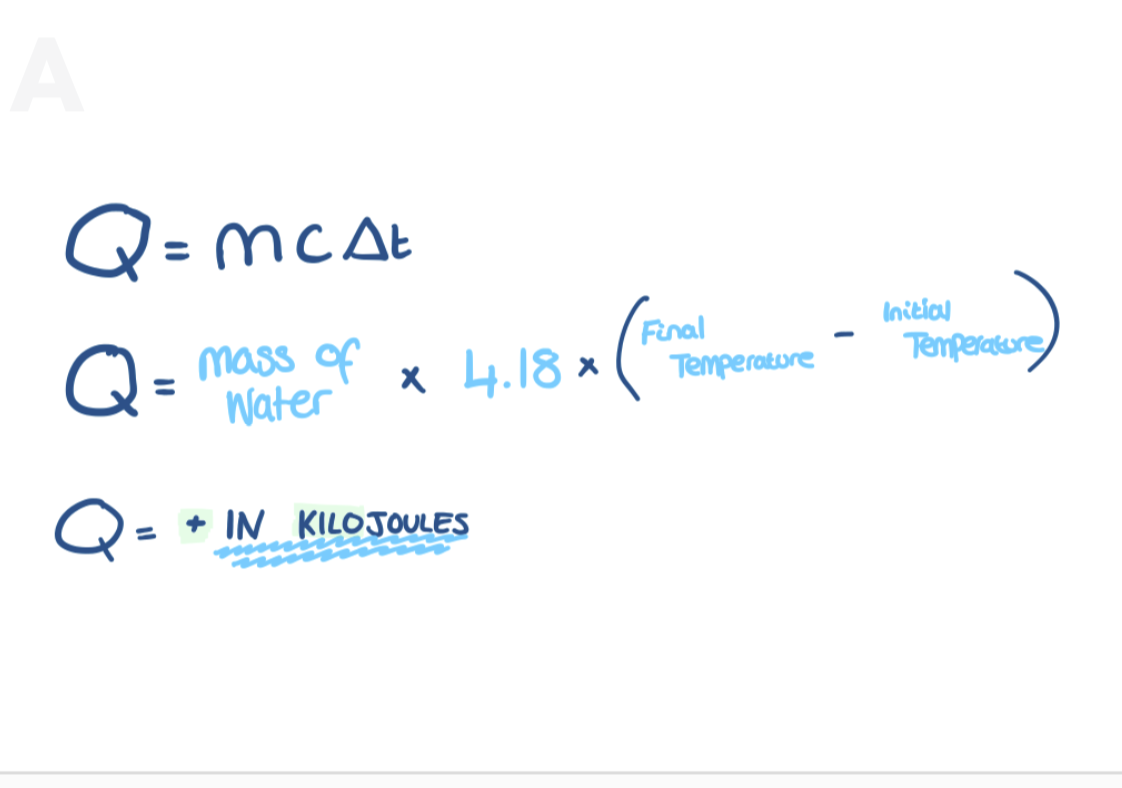 A
Q = mcΔt
Q = mass of water x 4.18 x (Final Temperature - Initial Temperature)
Q = + IN KILOJOULES